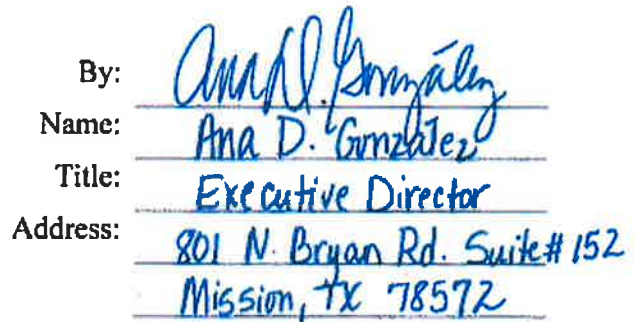 By: Ana D. González
Name: Ana D. González
Title: Executive Director
Address: 801 N. Bryan Rd. Suite# 152
Mission, TX 78572